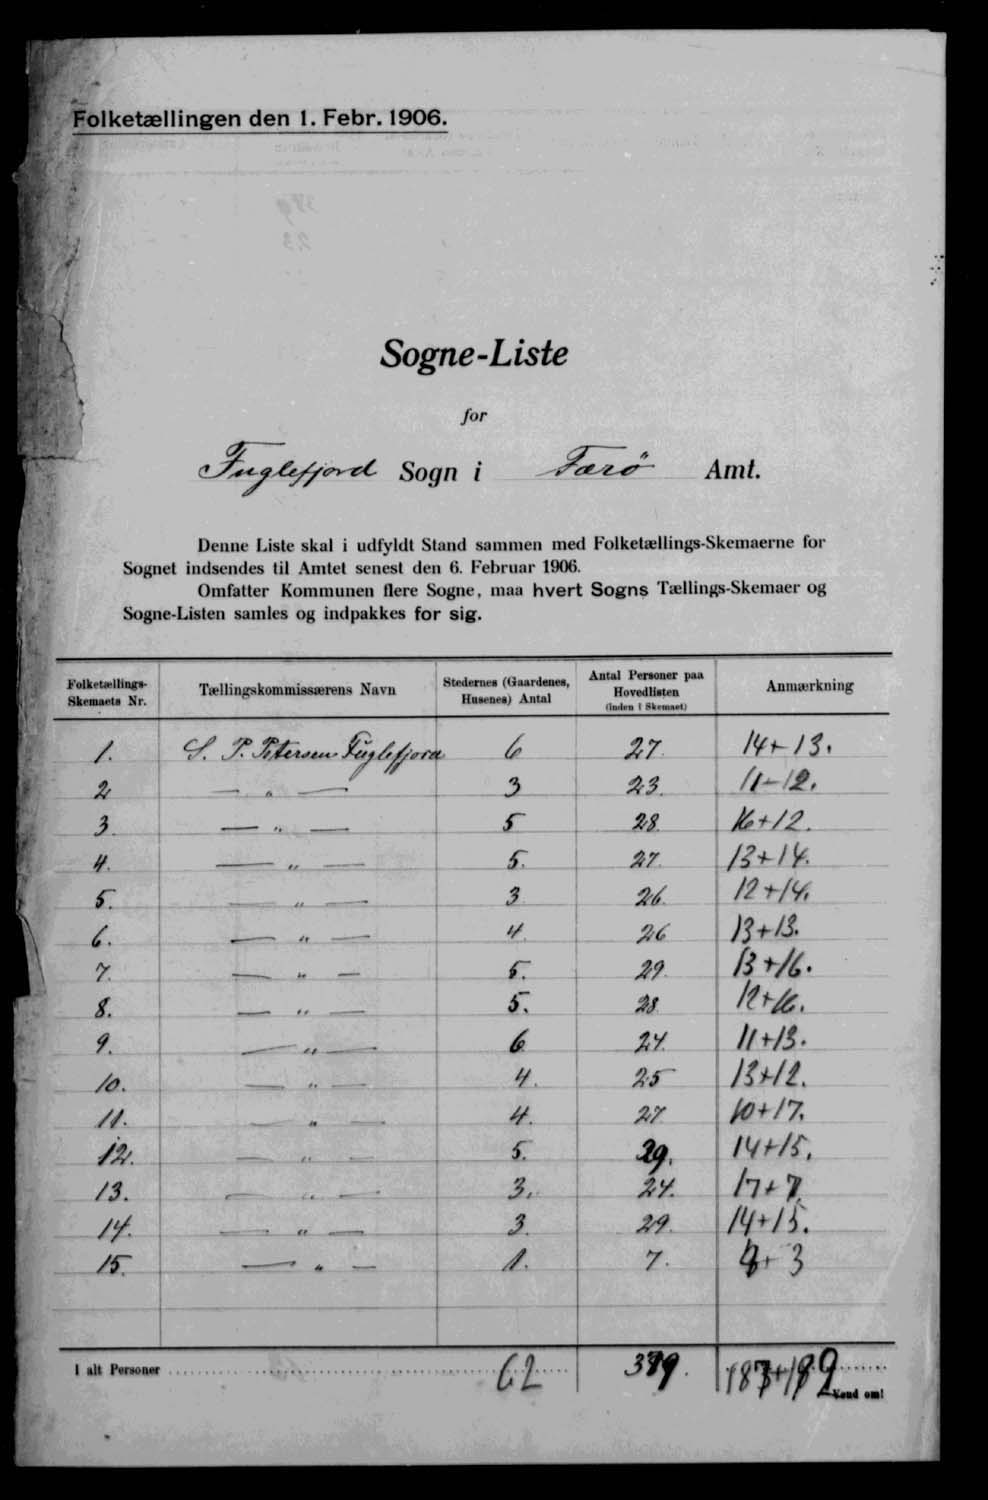 Folketællingen den 1. Febr. 1906.
Sogne-Liste
for
Fuglefjord Sogn i Færö Amt.
Denne Liste skal i udfyldt Stand sammen med Folketællings-Skemaerne for
Sognet indsendes til Amtet senest den 6. Februar 1906.
Omfatter Kommunen flere Sogne, maa hvert Sogns Tællings-Skemaer og
Sogne-Listen samles og indpakkes for sig.
Folketællings-Skemaets Nr. Tællingskommissærens Navn Stedernes (Gaardenes, Husenes) Antal Antal Personer paa Hovedlisten (inden i Skemaet) Anmærkning
1. S. P. Petersen Fuglefjord 6 27. 14+13.
2 — „ — 3 23. 11-12.
3. — „ — 5 28. 16+12.
4. — „ — 5. 27. 13+14.
5. — „ — 3 26. 12+14.
6. — „ — 4. 26 13+13.
7. — „ — 5. 29. 13+16.
8. — „ — 5. 28. 12+16.
9. — „ — 6. 24. 11+13.
10. — „ — 4. 25 13+12.
11. — „ — 4. 27. 10+17.
12. — „ — 5. 29. 14+15.
13. — „ — 3. 24. 17+7
14. — „ — 3. 29. 14+15.
15. — „ — 1. 7. + 3
I alt Personer 62
Vend om!